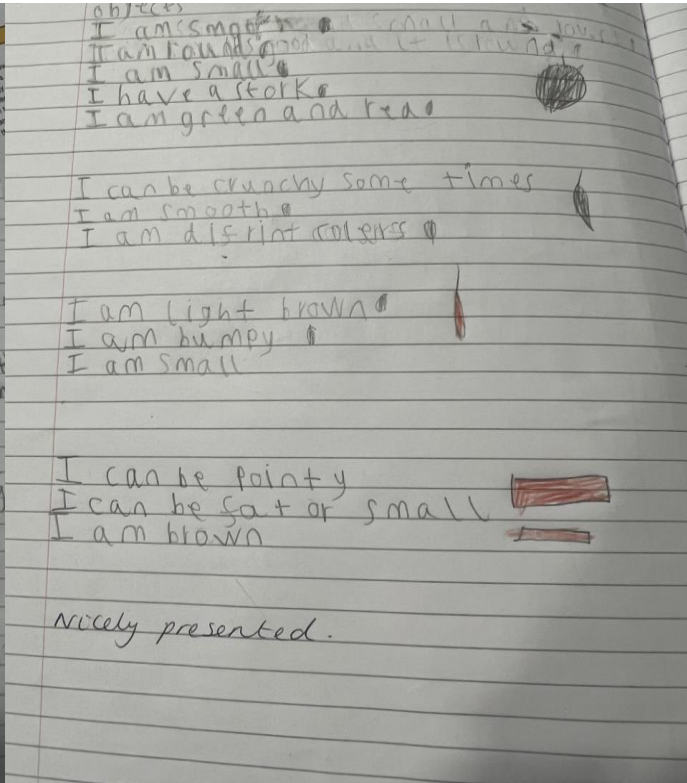 objects
I am smooth small and
I am round good and it is round
I am small.
I have a stork.
I am green and read.
I can be crunchy some times
I am smooth.
I am disrint colerss.
I am light brown.
I am bumpy.
I am small
I can be pointy
I can be fat or small
I am brown
Nicely presented.